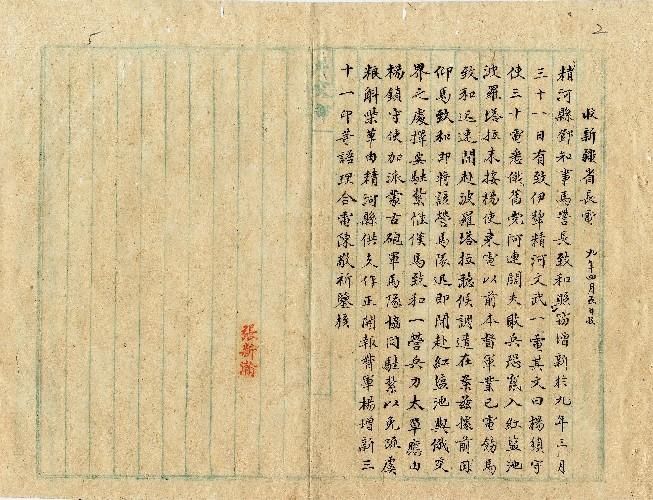 2
收新疆省長電 九年四月五日收
精河縣鄧知事馬營長致和照竊增新於九年三月
三十八日有致伊犂精河文武一電其文曰楊鎮守
使三十電悉俄舊党阿連闊夫敗兵恐竄入紅鹽池
波羅塔拉未接楊使來電以前本督軍業已電飭馬
致和迅速開赴波羅塔拉聽候調遣在案茲據前因
仰馬致和即將該營馬隊迅即開赴紅鹽池與俄交
界之處擇要駐紮惟僅馬致和一營兵力太單應由
楊鎮守使加派蒙古砲軍馬隊協同駐紮以免疏虞
粮斛柴草由精河縣供支作正開報督軍楊增新三
十一印等語理合電陳敬祈鑒核
張新瀚
5